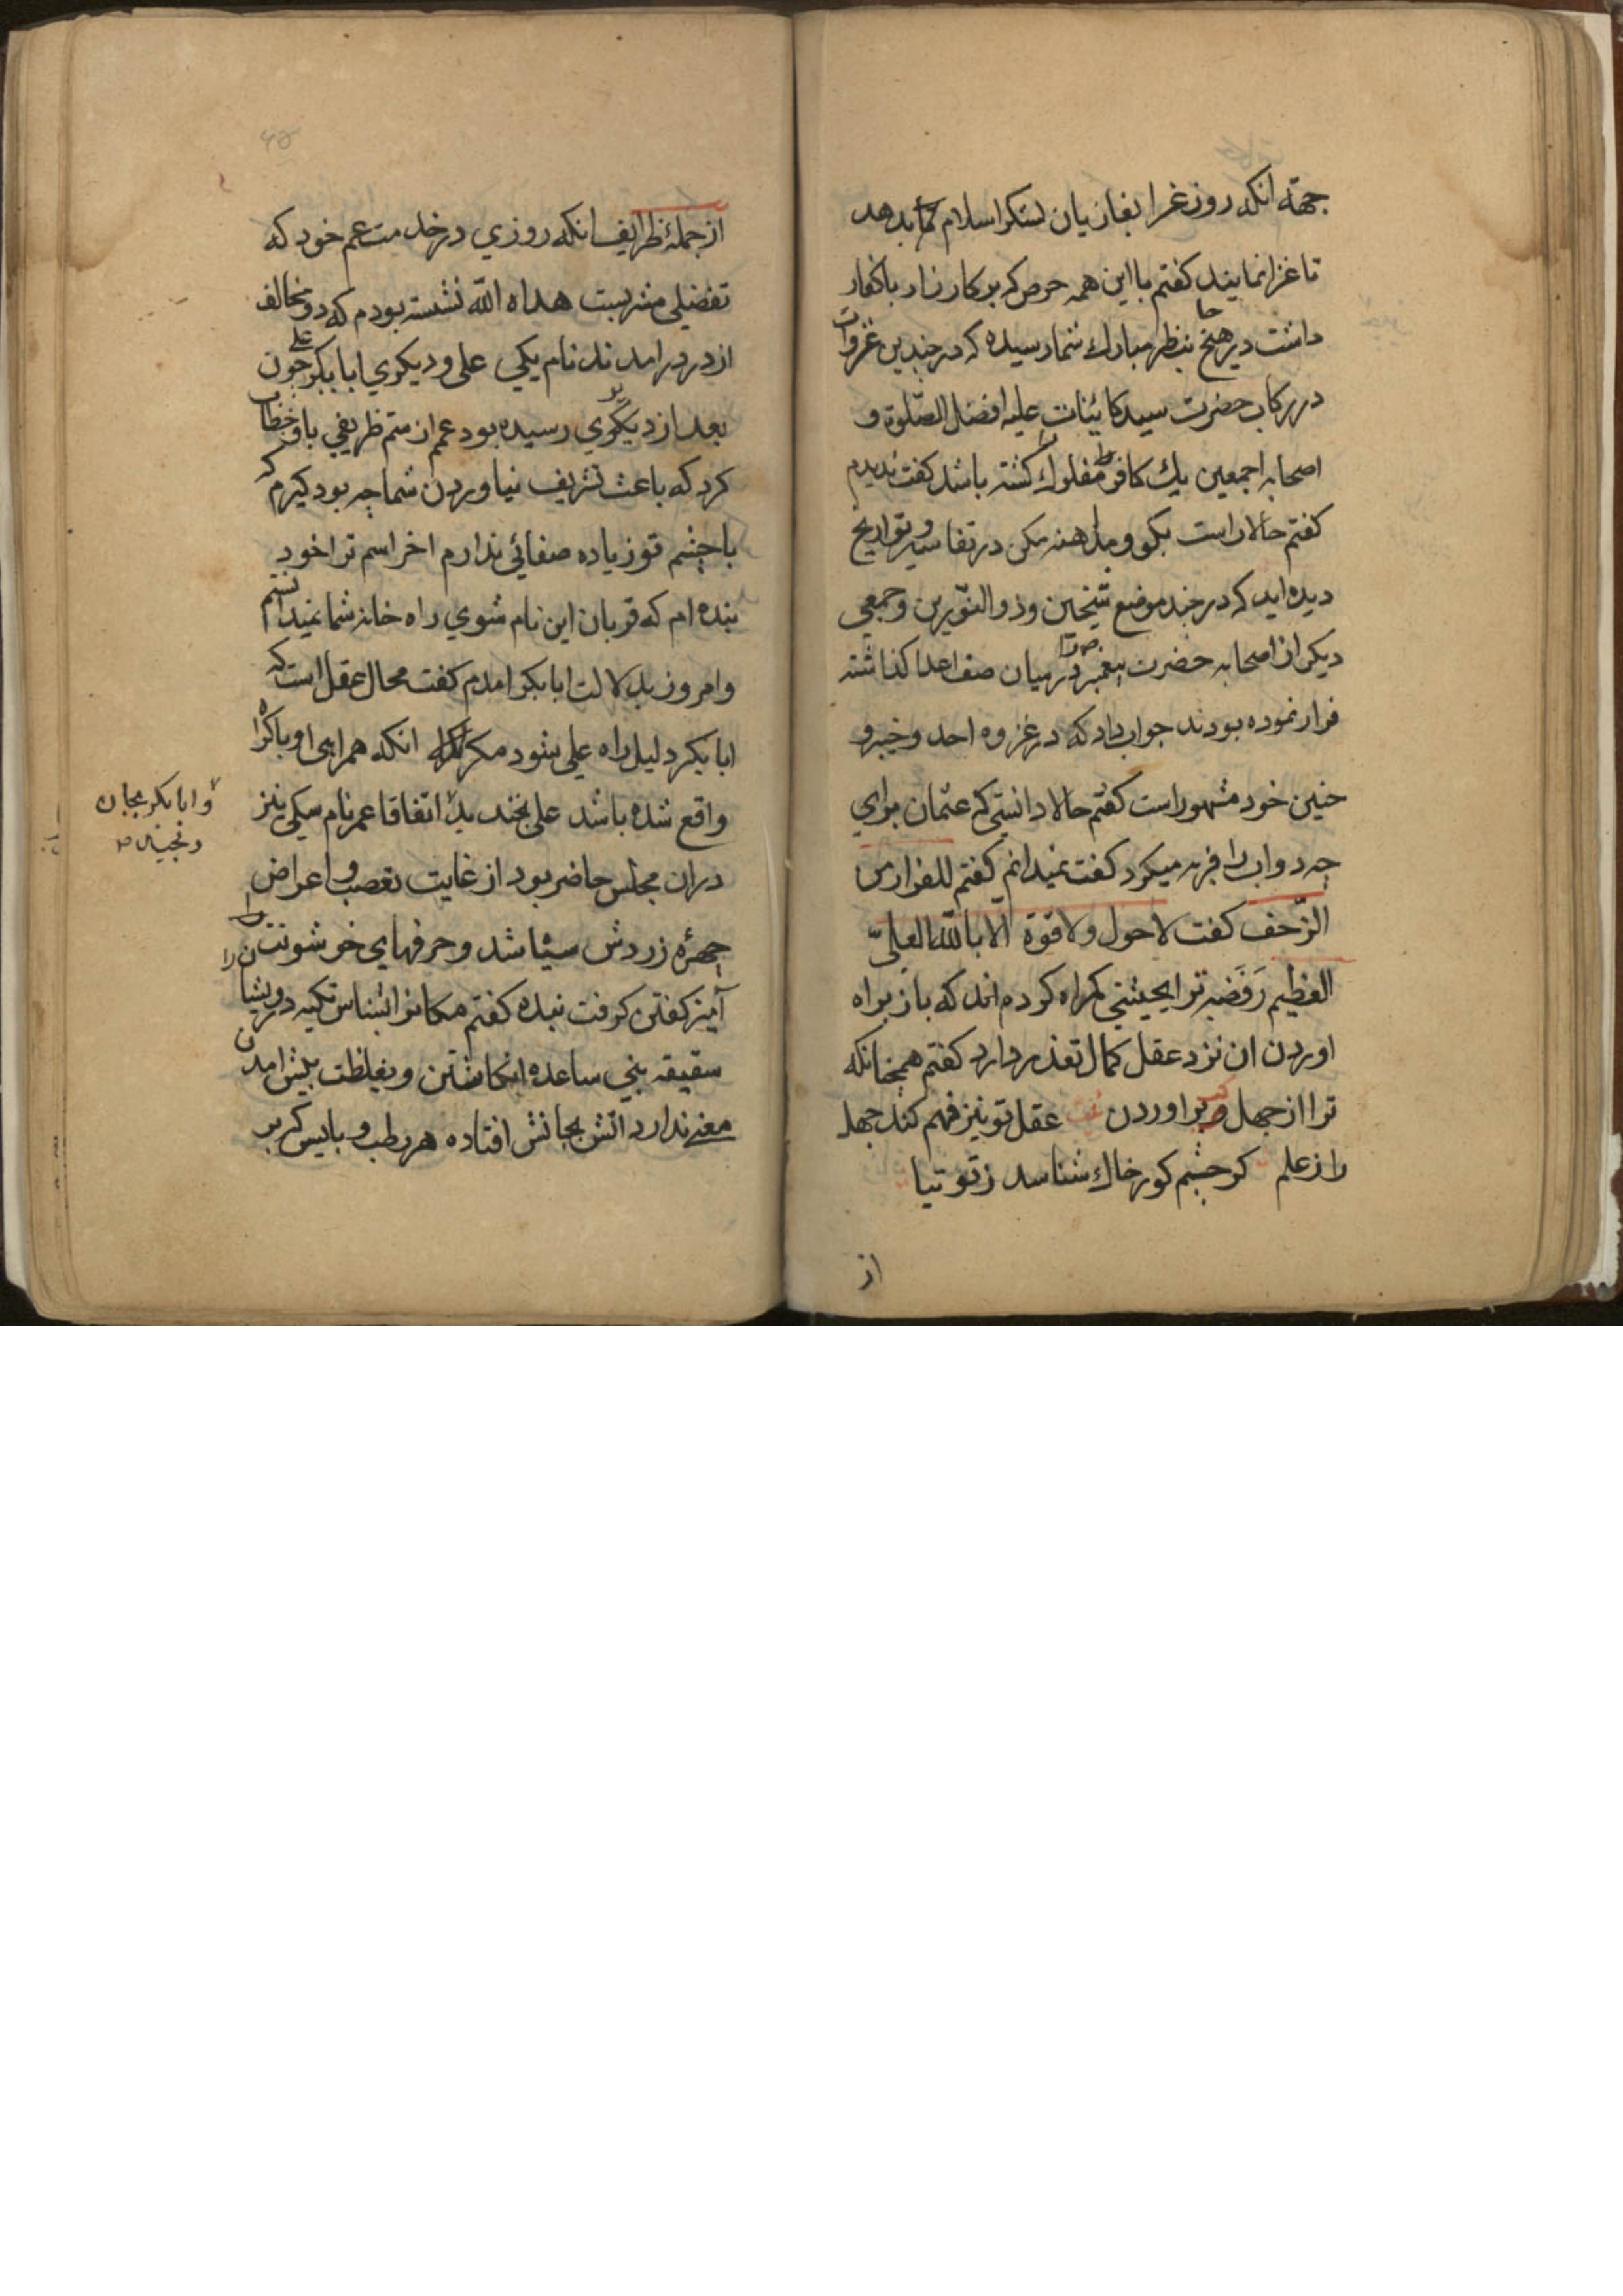 جهته انکه روز غزا بغازیان لشکر اسلام بدهد
تا غزا نمایند کفتم با این همه حرص که بر کارزار با کفار
داشت در هیچ جا بنظر مبارك شما رسیده که در چندین غزوات
در رکاب حضرت سید کائنات علیه افضل الصلوة و
اصحابه اجمعین یك کافر مفلوك را کشته باشد کفت ندیدم
کفتم حالا راست بکو و مداهنه مکن در تفاسیر و تواریخ
دیده اید که در چند موضع شیخین وذوالنورین وجمعی
دیکر از اصحابه حضرت پیغمبر را در میان صف اعدا کذاشته
فرار نموده بودند جواب داد که در غزوه احد و خیبر و
حنین خود مشهور است کفتم حالا دانستی که عثمان برای
چه دواب را فربه میکرد کفت نمیدانم کفتم للفرار من
الزحف کفت لاحول ولا قوة الا بالله العلی
العظیم رفضه ترا بحیثیتی کمراه کرده اند که باز براه
اوردن ان نزد عقل کمال تعذر دارد کفتم همچنانکه
ترا از جهل بر اوردن عقل تو نیز فهم کند جهل
را ز علم کر چشم کور خاك شناسد ز توتیا
از
از جملهٔ ظرایف انکه روزی در خدمت عم خود که
تفضیلی مشربست هداه الله نشسته بودم که دو مخالف
از در درامدند نام یکی علی و دیکری ابابکر چون علی
بعد از دیکری رسیده بود عم از ستم ظریفی باو خطاب
کرد که باعث تشریف نیاوردن شما چه بود کیرم که
با چشم تو زیاده صفائی ندارم اخر اسم ترا خود
بنده ام که قربان این نام شوی راه خانه شما نمیدانستم
وامروز بدلالت ابابکر امدم کفت محال عقل است که
ابابکر دلیل راه علی شود مکر انکه همراهی او باکراه
واقع شده باشد علی بخندید اتفاقا عمر نام سکی نیز
وابابکر بجان
رنجید
دران مجلس حاضر بود از غایت تعصب و اعراض
چهرهٔ زردش سیاه شد وحرفهای خوشونت
آمیز کفتن کرفت بنده کفتم مکانرا بشناس تکیه درویشانرا
سقیفه بنی ساعده انکاشتن و بغلظت پیش امدن
معنی ندارد اتش بجانش افتاده هر رطب و یابس که بر